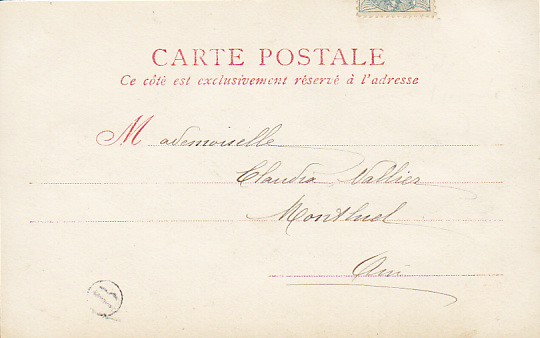 CARTE POSTALE
Ce côté est exclusivement réservé à l'adresse
Mademoiselle
Claudia Vallier
Montluel
Ain